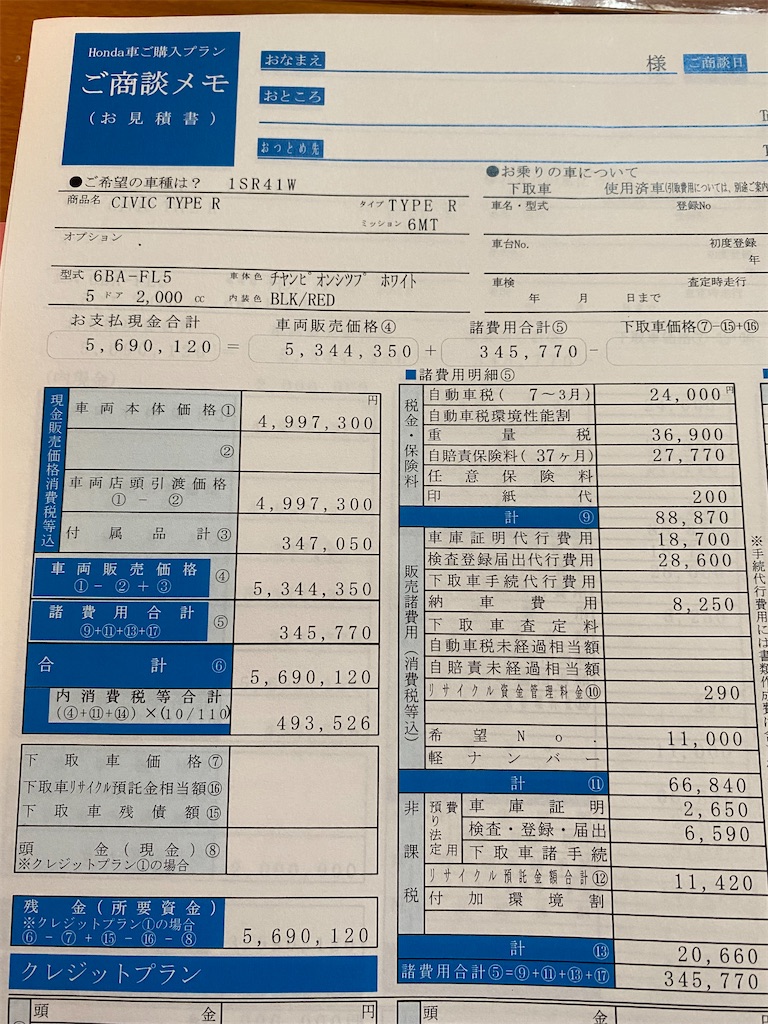 Honda車ご購入プラン
ご商談メモ
(お見積書)
おなまえ 様 ご商談日
おところ
おつとめ先
●ご希望の車種は? 1SR41W
商品名 CIVIC TYPE R タイプ TYPE R
ミッション 6MT
オプション
型式 6BA-FL5 車体色 チヤンピオンシツプ ホワイト
5 ドア 2,000 cc 内装色 BLK/RED
●お乗りの車について
下取車 使用済車(引取費用については、別途ご案内
車名・型式 登録No
車台No. 初度登録
年
車検 査定時走行
年 月 日まで
お支払現金合計 車両販売価格④ 諸費用合計⑤ 下取車価格⑦-⑮+⑯
5,690,120 = 5,344,350 + 345,770 -
現金販売価格消費税等込
円
車両本体価格① 4,997,300
②
車両店頭引渡価格
①-② 4,997,300
付属品計③ 347,050
車両販売価格
①-②+③ ④ 5,344,350
諸費用合計
⑨+⑪+⑬+⑰ ⑤ 345,770
合計⑥ 5,690,120
内消費税等合計
(④+⑪+⑭)×(10/110) 493,526
下取車価格⑦
下取車リサイクル預託金相当額⑯
下取車残債額⑮
頭金(現金)⑧
※クレジットプラン①の場合
残金(所要資金)
※クレジットプラン①の場合
⑥-⑦+⑮-⑯-⑧ 5,690,120
クレジットプラン
頭金 円
■諸費用明細⑤
税金・保険料
自動車税( 7~3月) 24,000円
自動車税環境性能割
重量税 36,900
自賠責保険料(37ヶ月) 27,770
任意保険料
印紙代 200
計⑨ 88,870
販売諸費用(消費税等込)
車庫証明代行費用 18,700
検査登録届出代行費用 28,600
下取車手続代行費用
納車費用 8,250
下取車査定料
自動車税未経過相当額
自賠責未経過相当額
リサイクル資金管理料金⑩ 290
希望No. 11,000
軽ナンバー
計⑪ 66,840
非課税
預り法定費用
車庫証明 2,650
検査・登録・届出 6,590
下取車諸手続
リサイクル預託金額合計⑫ 11,420
付加環境割
計⑬ 20,660
諸費用合計⑤=⑨+⑪+⑬+⑰ 345,770
頭金 円